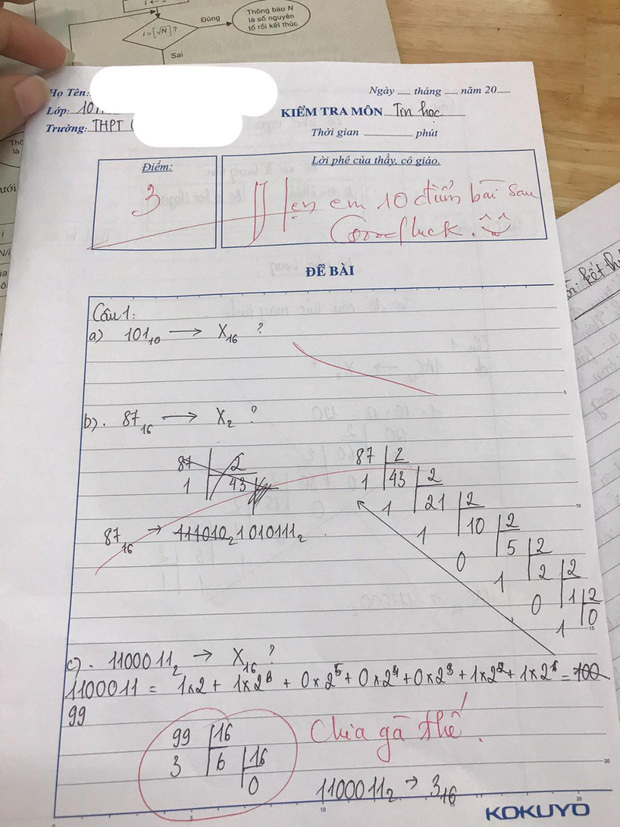 i>[√N]?
Đúng
Thông báo N
là số nguyên
tố rồi kết thúc
Sai
Họ Tên:
Ngày ___ tháng ___ năm 20___
Lớp: 101
KIỂM TRA MÔN Tin học
Trường: THPT (
Thời gian ______ phút
Điểm:
3
Lời phê của thầy, cô giáo.
Hẹn em 10 điểm bài sau
Good luck.
ĐỀ BÀI
Câu 1:
a) 101₁₀ → X₁₆ ?
b). 87₁₆ → X₂ ?
87 2
1 43
87 2
1 43 2
1 21 2
1 10 2
0 5 2
1 2 2
0 1 2
1 0
87₁₆ → 111010₂ 1010111₂
c). 1100011₂ → X₁₆ ?
1100011 = 1x2 + 1x2⁶ + 0x2⁵ + 0x2⁴ + 0x2³ + 1x2² + 1x2¹ = 100
99
99 16
3 6 16
0
Chia gà thế!
1100011₂ → 3₁₆
KOKUYO